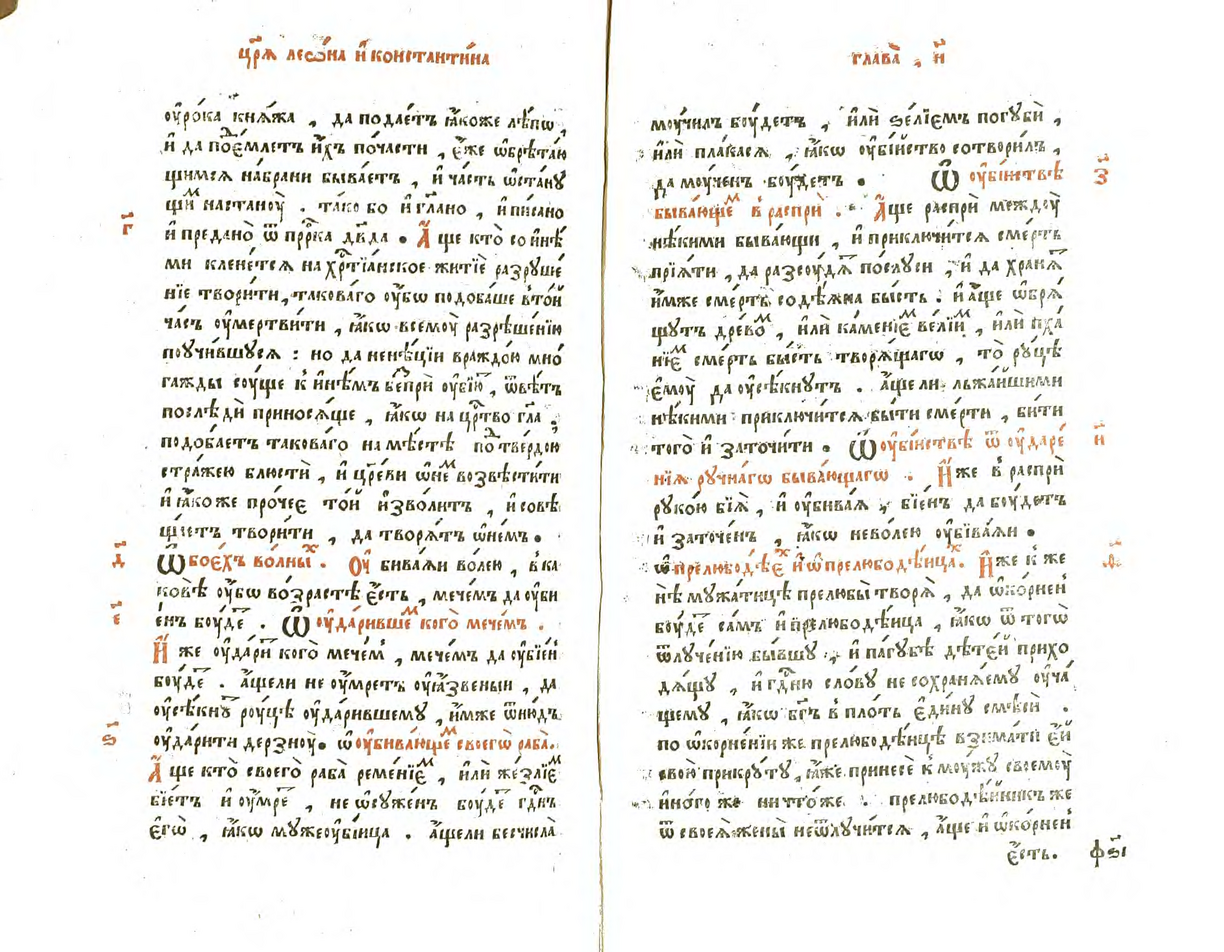 цр҃ѧ леѡ́на и҆ константи́на
ѹ҆ро́ка кнѧ́жа , да подае́тъ ꙗ҆́коже лѣ́пѡ ,
и҆ да поⷣе́млетъ и҆́хъ поча́сти , є҆́же ѡ҆брѣта́ю
щимсѧ на́брани быва́етъ , и҆ ча́сть ѡ҆ста́нꙋ
щиⷨ настаноу̀ . та́ко бо и҆ гл҃ано , и҆ пи́сано
и҆ пре́дано ѿ прⷪ҇рка дв҃да . А҆́ще кто̀ со и҆нѣ́
ми клене́тсѧ на хрⷭ҇тїа́нское житїѐ разрꙋше́
нїе твори́ти , таково́го ѹ҆́бѡ подоба́ше в то́й
ча́съ ѹ҆мертви́ти , ꙗ҆́кѡ всемоу̀ разрѣше́нїю
поꙋчи́вшꙋсѧ : но да не нѣ́цїи враждо́ю мно́
га́жды соу́ще к и҆нѣ́мъ беⷥпрѝ ѹ҆бїю́тъ , ѿвѣ́тъ
послѣдѝ принося́ще , ꙗ҆́кѡ на црⷭ҇тво гл҃а .
подоба́етъ таково́го на мѣ́стѣ поⷣ тве́рдою
стра́жею блюстѝ , и҆ цр҃еви ѡ҆ неⷨ возвѣсти́ти
и҆ ꙗ҆́ко же про́чее то́й и҆зво́литъ , и҆ совѣ
ща́етъ твори́ти , да творя́тъ ѡ҆ не́мъ .
Ѡ҆ боéхъ во́лныⷯ . Оу҆ бива́ѧи во́лею , в ка
ко́вѣ ѹ҆́бѡ во́зрастѣ є҆́сть , мече́мъ да ѹ҆бїе́
е́нъ боу́деⷮ . Ѡ҆ ѹ҆да́рившеⷨ кого̀ мече́мъ .
И҆́же ѹ҆да́ритъ кого̀ мече́мъ , мече́мъ да ѹ҆бїе́нъ
боу́деⷮ . а҆́щели не ѹ҆́мретъ ѹ҆ꙗ҆́звеныи , да
ѹ҆сѣкнꙋⷮ роу́цѣ ѹ҆да́рившемꙋ , и҆́мже ѿню́дъ
ѹ҆да́рити дерзноу̀ . ѡ҆ ѹ҆бива́ющеⷨ своего̀ раба̀ .
А҆́ще кто̀ своего̀ раба̀ реме́нїеⷨ , и҆лѝ же́злїеⷨ
бїе́тъ и҆ ѹ҆́мреⷮ , не ѡ҆сꙋ́женъ боу́деⷮ гдⷭ҇нъ
є҆гѡ̀ , ꙗ҆́кѡ мꙋжеѹ҆бі́йца . а҆́щели бесчи́сла
г҃
д҃
є҃
ѕ҃
глава̀ , и҃
моу́чилъ боу́детъ , и҆лѝ ѕе́лїемъ погꙋбѝ ,
и҆лѝ пла́касѧ , ꙗ҆́кѡ ѹ҆бі́йство сотвори́лъ ,
да моу́ченъ боу́детъ . Ѡ҆ ѹ҆бі́йствѣ
быва́ющеⷨ в распрѝ . А҆́ще распрѝ междоу̀
нѣ́кими быва́ющи , и҆ приключи́тсѧ сме́рть
прїѧ́ти , да разсоу́дѧⷮ по́слꙋси , и҆ да хранѧ́ⷮ
и҆́мже сме́рть содѣ́ѧна бы́сть . и҆ а҆́ще ѡ҆брѧ́
щꙋтъ дре́воⷨ , и҆лѝ ка́менїеⷨ ве́лїиⷨ , и҆лѝ пха́
нїеⷨ сме́рть бы́сть творѧ́щагѡ , то̀ рꙋ́цѣ
є҆моу̀ да ѹ҆сѣкнꙋ́тъ . а҆́щели льжа́йшими
нѣ́кими приключи́тсѧ бы́ти сме́рти , би́ти
того̀ и҆ заточи́ти . Ѡ҆ ѹ҆бі́йствѣ ѿ ѹ҆даре́
нїѧ рꙋчна́гѡ быва́ющагѡ . И҆́же в распрѝ
рꙋко́ю бїѧ̀ , и҆ ѹ҆бива́ѧ , бїе́нъ да боу́детъ
и҆ заточе́нъ , ꙗ҆́кѡ нево́лею ѹ҆бива́ѧи .
ѡ҆ прелюбодѣ́еⷯ и҆ ѡ҆ прелюбодѣ́ицаⷯ . И҆́же к же
нѣ̀ мꙋжа́тицѣ прелюбы̀ творѧ̀ , да ѡ҆корне́нъ
боу́деⷮ са́мъ и҆ прелюбодѣ́ица , ꙗ҆́кѡ ѿ тогѡ̀
ѿлꙋче́нїю бы́вшꙋ , и҆ па́гꙋбѣ дѣте́й прихо
дѧ́щꙋ , и҆ гдⷭ҇ню сло́вꙋ не сохранѧ́емꙋ ѹ҆ча́
щемꙋ , ꙗ҆́кѡ бг҃ъ в пло́ть є҆ди́нꙋ смѣсѝ .
по ѡ҆корне́нїи же прелюбодѣ́ицѣ взима́ти є҆́й
своѝ прикрꙋ́тꙋ , ꙗ҆́же принесѐ к моу́жꙋ своемоу̀
и҆но́го же ничто́же . прелюбодѣ́йникъ же
ѿ своеѧ̀ жены̀ не ѿлꙋчи́тсѧ , а҆́ще и҆ ѡ҆корне́нъ
є҆́сть .
з҃
и҃
ѳ҃
фѕ҃і